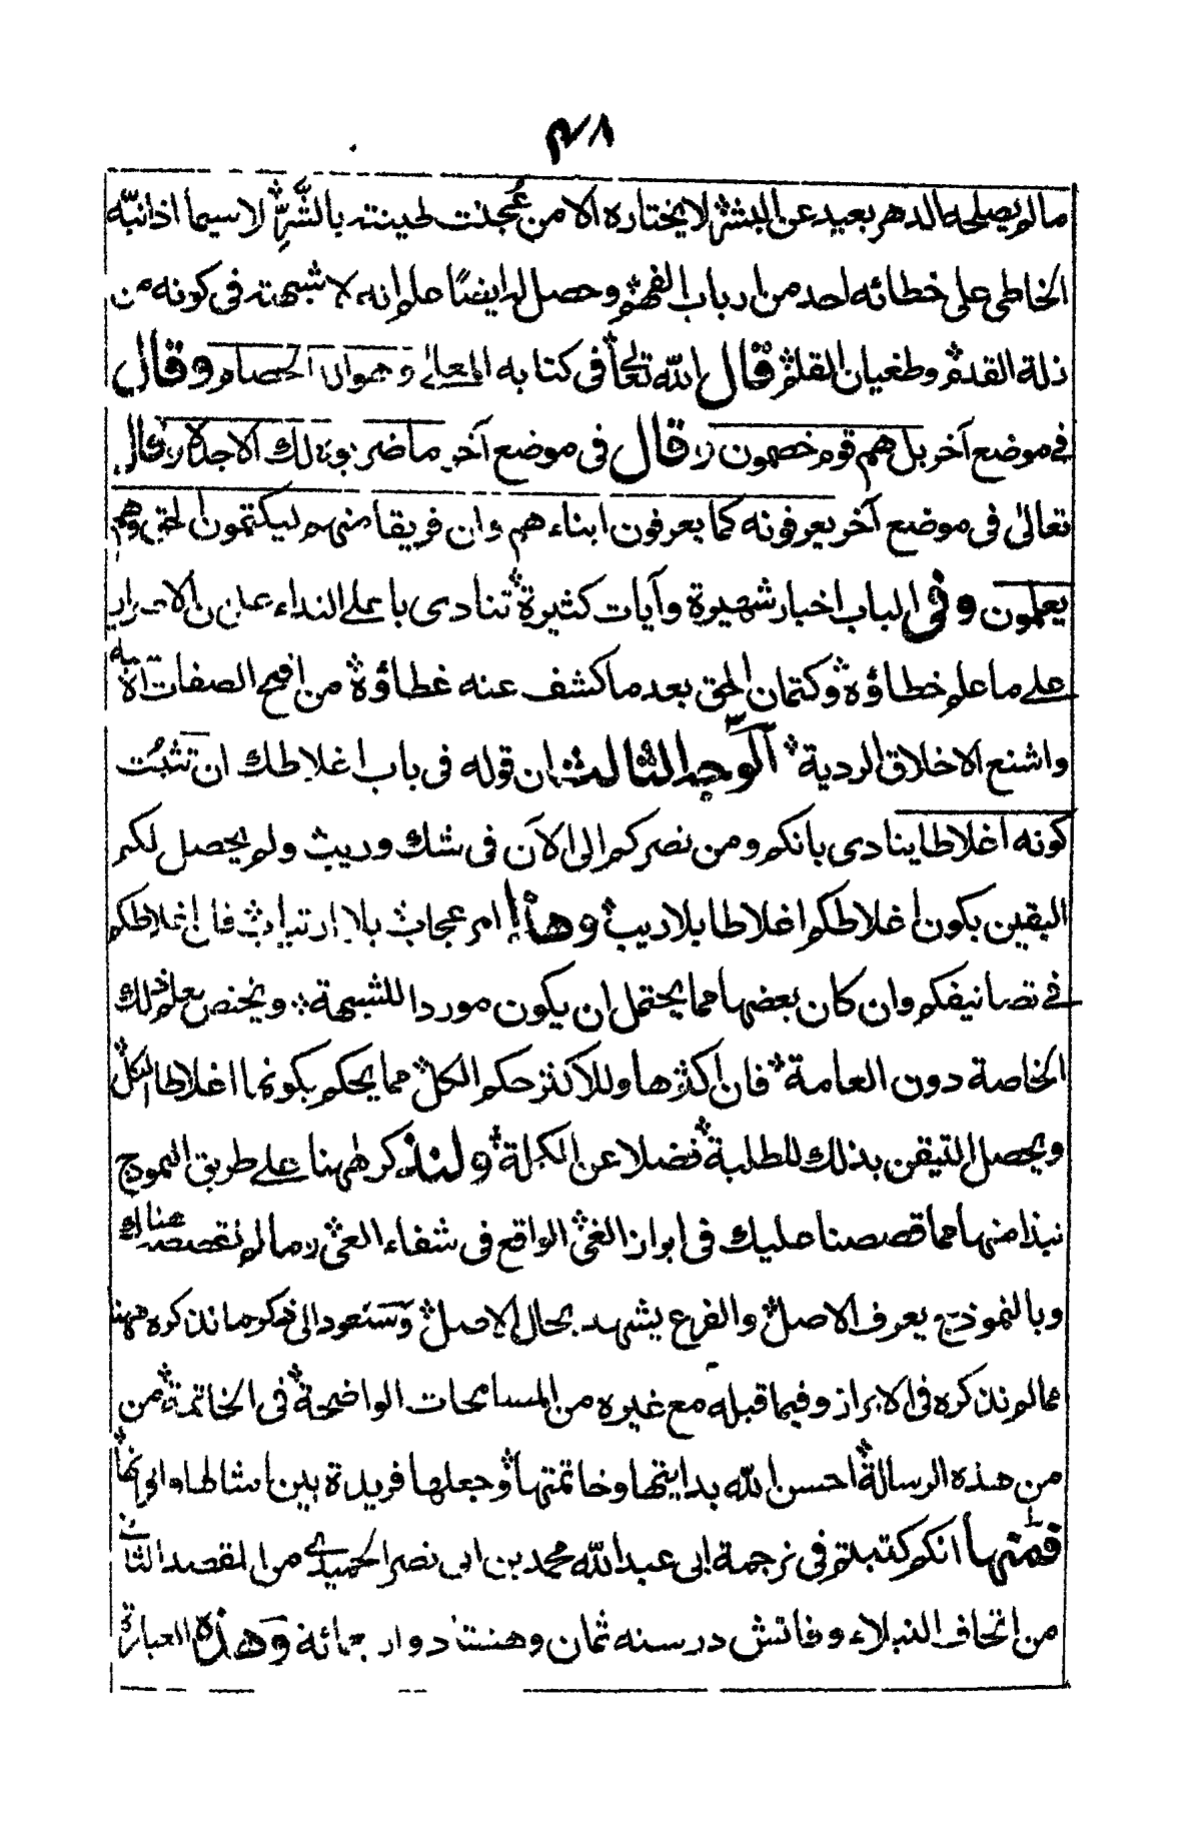 ٤٨
ما لم يصلحه الدهر بعيد عن البشر لا يختاره الا من عُجنت طينته بالشَّرِّ لا سيما اذا نبّه
الخاطى على خطائه احد من ارباب الفهم وحصل له ايضًا علم انه لا شبهة فى كونه من
زلة القدم وطغيان القلم قال الله تعالى فى كتابه المعالى وهو الد الخصام وقال
فى موضع آخر بل هم قوم خصمون وقال فى موضع آخر ما ضربوه لك الا جدلا وقال
تعالى فى موضع آخر يعرفونه كما يعرفون ابناءهم وان فريقا منهم ليكتمون الحق وهم
يعلمون وفى الباب اخبار شهيرة وآيات كثيرة تنادى باعلى النداء على ان الاصرار
على ما علم خطاؤه وكتمان الحق بعد ما كشف عنه غطاؤه من اقبح الصفات
واشنع الاخلاق الردية الوجه الثالث ان قوله فى باب اغلاطك ان تثبت
كونه اغلاطا ينادى بانكم ومن نصركم الى الآن فى شك وريب ولم يحصل لكم
اليقين بكون اغلاطكم اغلاطا بلا ريب وهذا امر عجاب بلا ارتياب فان اغلاطكم
فى تصانيفكم وان كان بعضها مما يحتمل ان يكون موردا للشبهة ويختص بعلم ذلك
الخاصة دون العامة فان اكثرها وللاكثر حكم الكل مما يحكم بكونها اغلاطا الكل
ويحصل التيقن بذلك للطلبة فضلا عن الكملة ولنذكر ههنا على طريق النموذج
نبذا منها مما قصصنا عليك فى ابراز الغى الواقع فى شفاء العى وما لم نقصصه هنالك
وبالنموذج يعرف الاصل والفرع يشهد بحال الاصل وسنعود الى ذكر ما نذكره ههنا
مما لم نذكره فى الابراز وفيما قبله مع غيره من المسامحات الواضحة فى الخاتمة من
من هذه الرسالة احسن الله بدايتها وخاتمتها وجعلها فريدة بين امثالها واقرانها
فمنها انكم كتبتم فى ترجمة ابى عبد الله محمد بن ابى نصر الحميدى من المقصد الثانى
من اتحاف النبلاء وفاتش در سنه ثمان وهشتاد وار بمائة وهذه العبارة